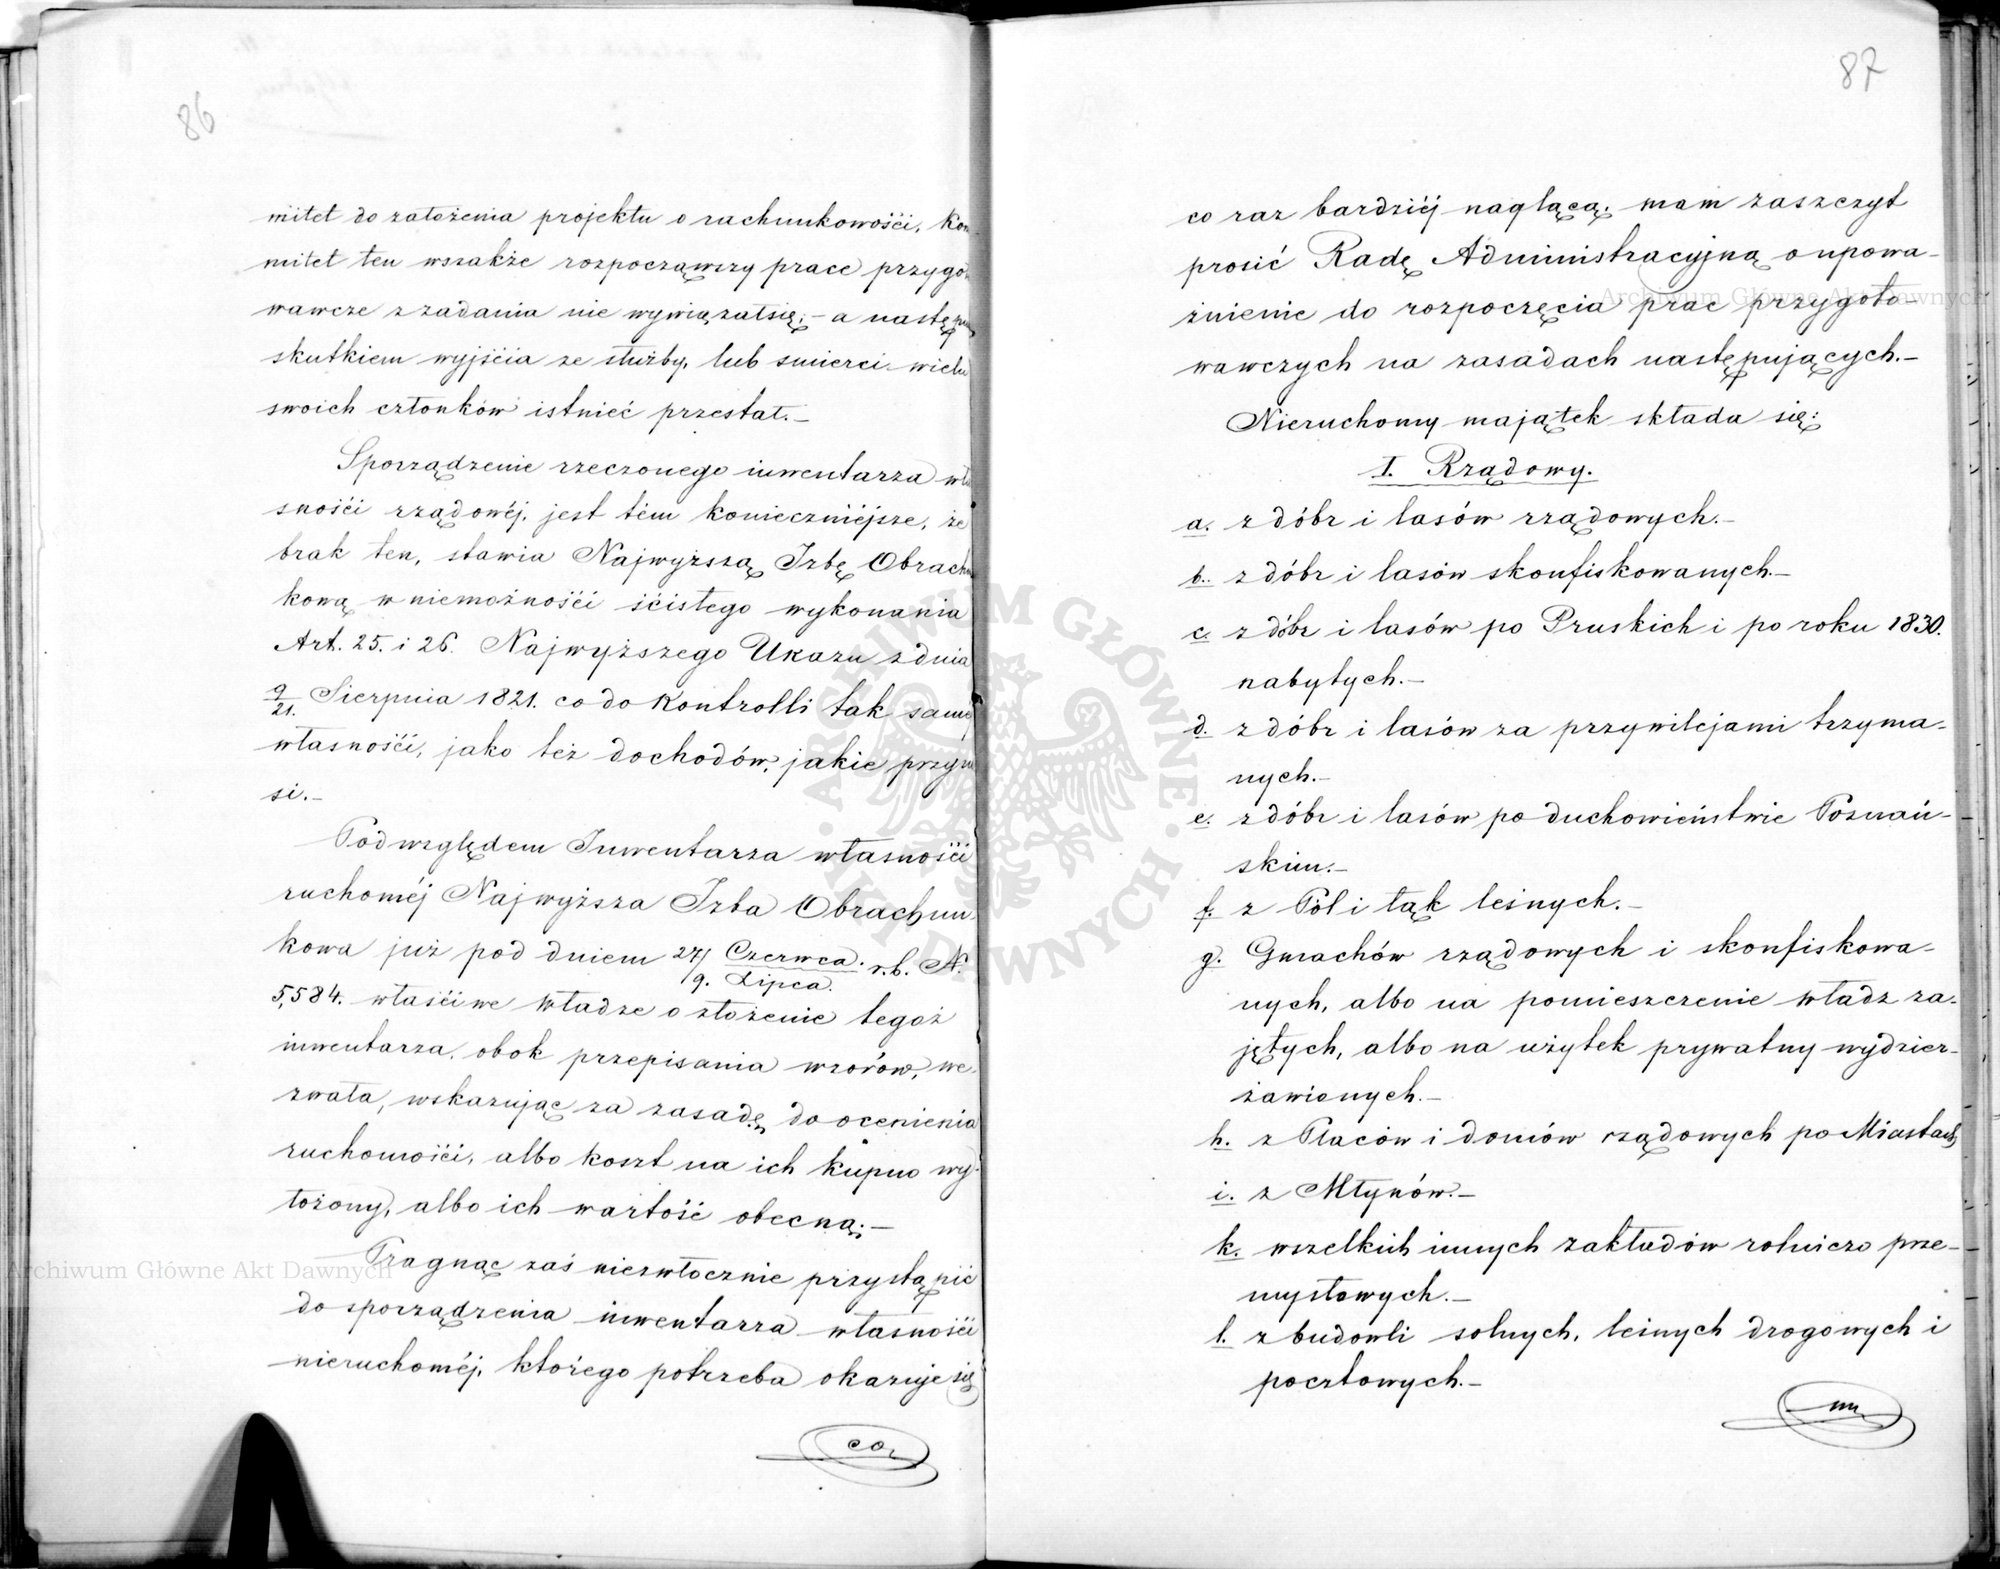 86
mitet do założenia projektu o rachunkowośći, Kom
mitet ten wszakże rozpocząwszy prace przygo
wawcze z zadania nie wywiązał się; – a następnie
skutkiem wyjśćia ze służby, lub smierci wielu
swoich członków istnieć przestał. –
Sporządzenie rzeczonego inwentarza wła
snośći rządowéj, jest tém konieczniéjsze, że
brak ten, stawia Najwyższą Izbę Obrachun
kową w niemożnośći śćisłego wykonania
Art. 25. i 26. Najwyższego Ukazu z dnia
9/21. Sierpnia 1821. co do Kontrolli tak saméj
własnośći, jako też dochodów, jakie przyno
si. –
Pod względem Inwentarza własnośći
ruchoméj Najwyższa Izba Obrachun
kowa już pod dniem 27/9. Czerwca/Lipca. r.b. N.
5,584. właśćiwe Władze o złożenie tegoż
inwentarza, obok przepisania wzorów, we-
zwała, wskazując za zasadę, do ocenienia
ruchomośći, albo koszt na ich kupno wy-
łożony, albo ich wartość obecną; –
Pragnąc zaś niezwłocznie przystąpić
do sporządzenia inwentarza własnośći
nieruchoméj, którego potrzeba okazuje się
co
87
co raz bardziéj naglącą, mam zaszczyt
prosić Radę Administracyjną o upowa-
żnienie do rozpoczęcia prac przygoto-
wawczych na zasadach następujących. –
Nieruchomy majątek składa się:
I. Rządowy.
a. z dóbr i lasów rządowych. –
b. z dóbr i lasów skonfiskowanych. –
c. z dóbr i lasów po Pruskich i po roku 1830.
nabytych. –
d. z dóbr i lasów za przywilejami trzyma-
nych. –
e. z dóbr i lasów po duchowieństwie Poznań-
skim. –
f. z Pól i łąk leśnych. –
g. Gmachów rządowych i skonfiskowa-
nych, albo na pomieszczenie władz za-
jętych, albo na użytek prywatny wydzier-
żawionych. –
h. z Placów i domów rządowych po Miastach
i. z Młynów. –
k. wszelkich innych zakładów rolniczo prze-
mysłowych. –
l. z budowli solnych, leśnych drogowych i
pocztowych. –
m
Archiwum Główne Akt Dawnych
Archiwum Główne Akt Dawnych
ARCHIWUM GŁÓWNE · AKT DAWNYCH ·